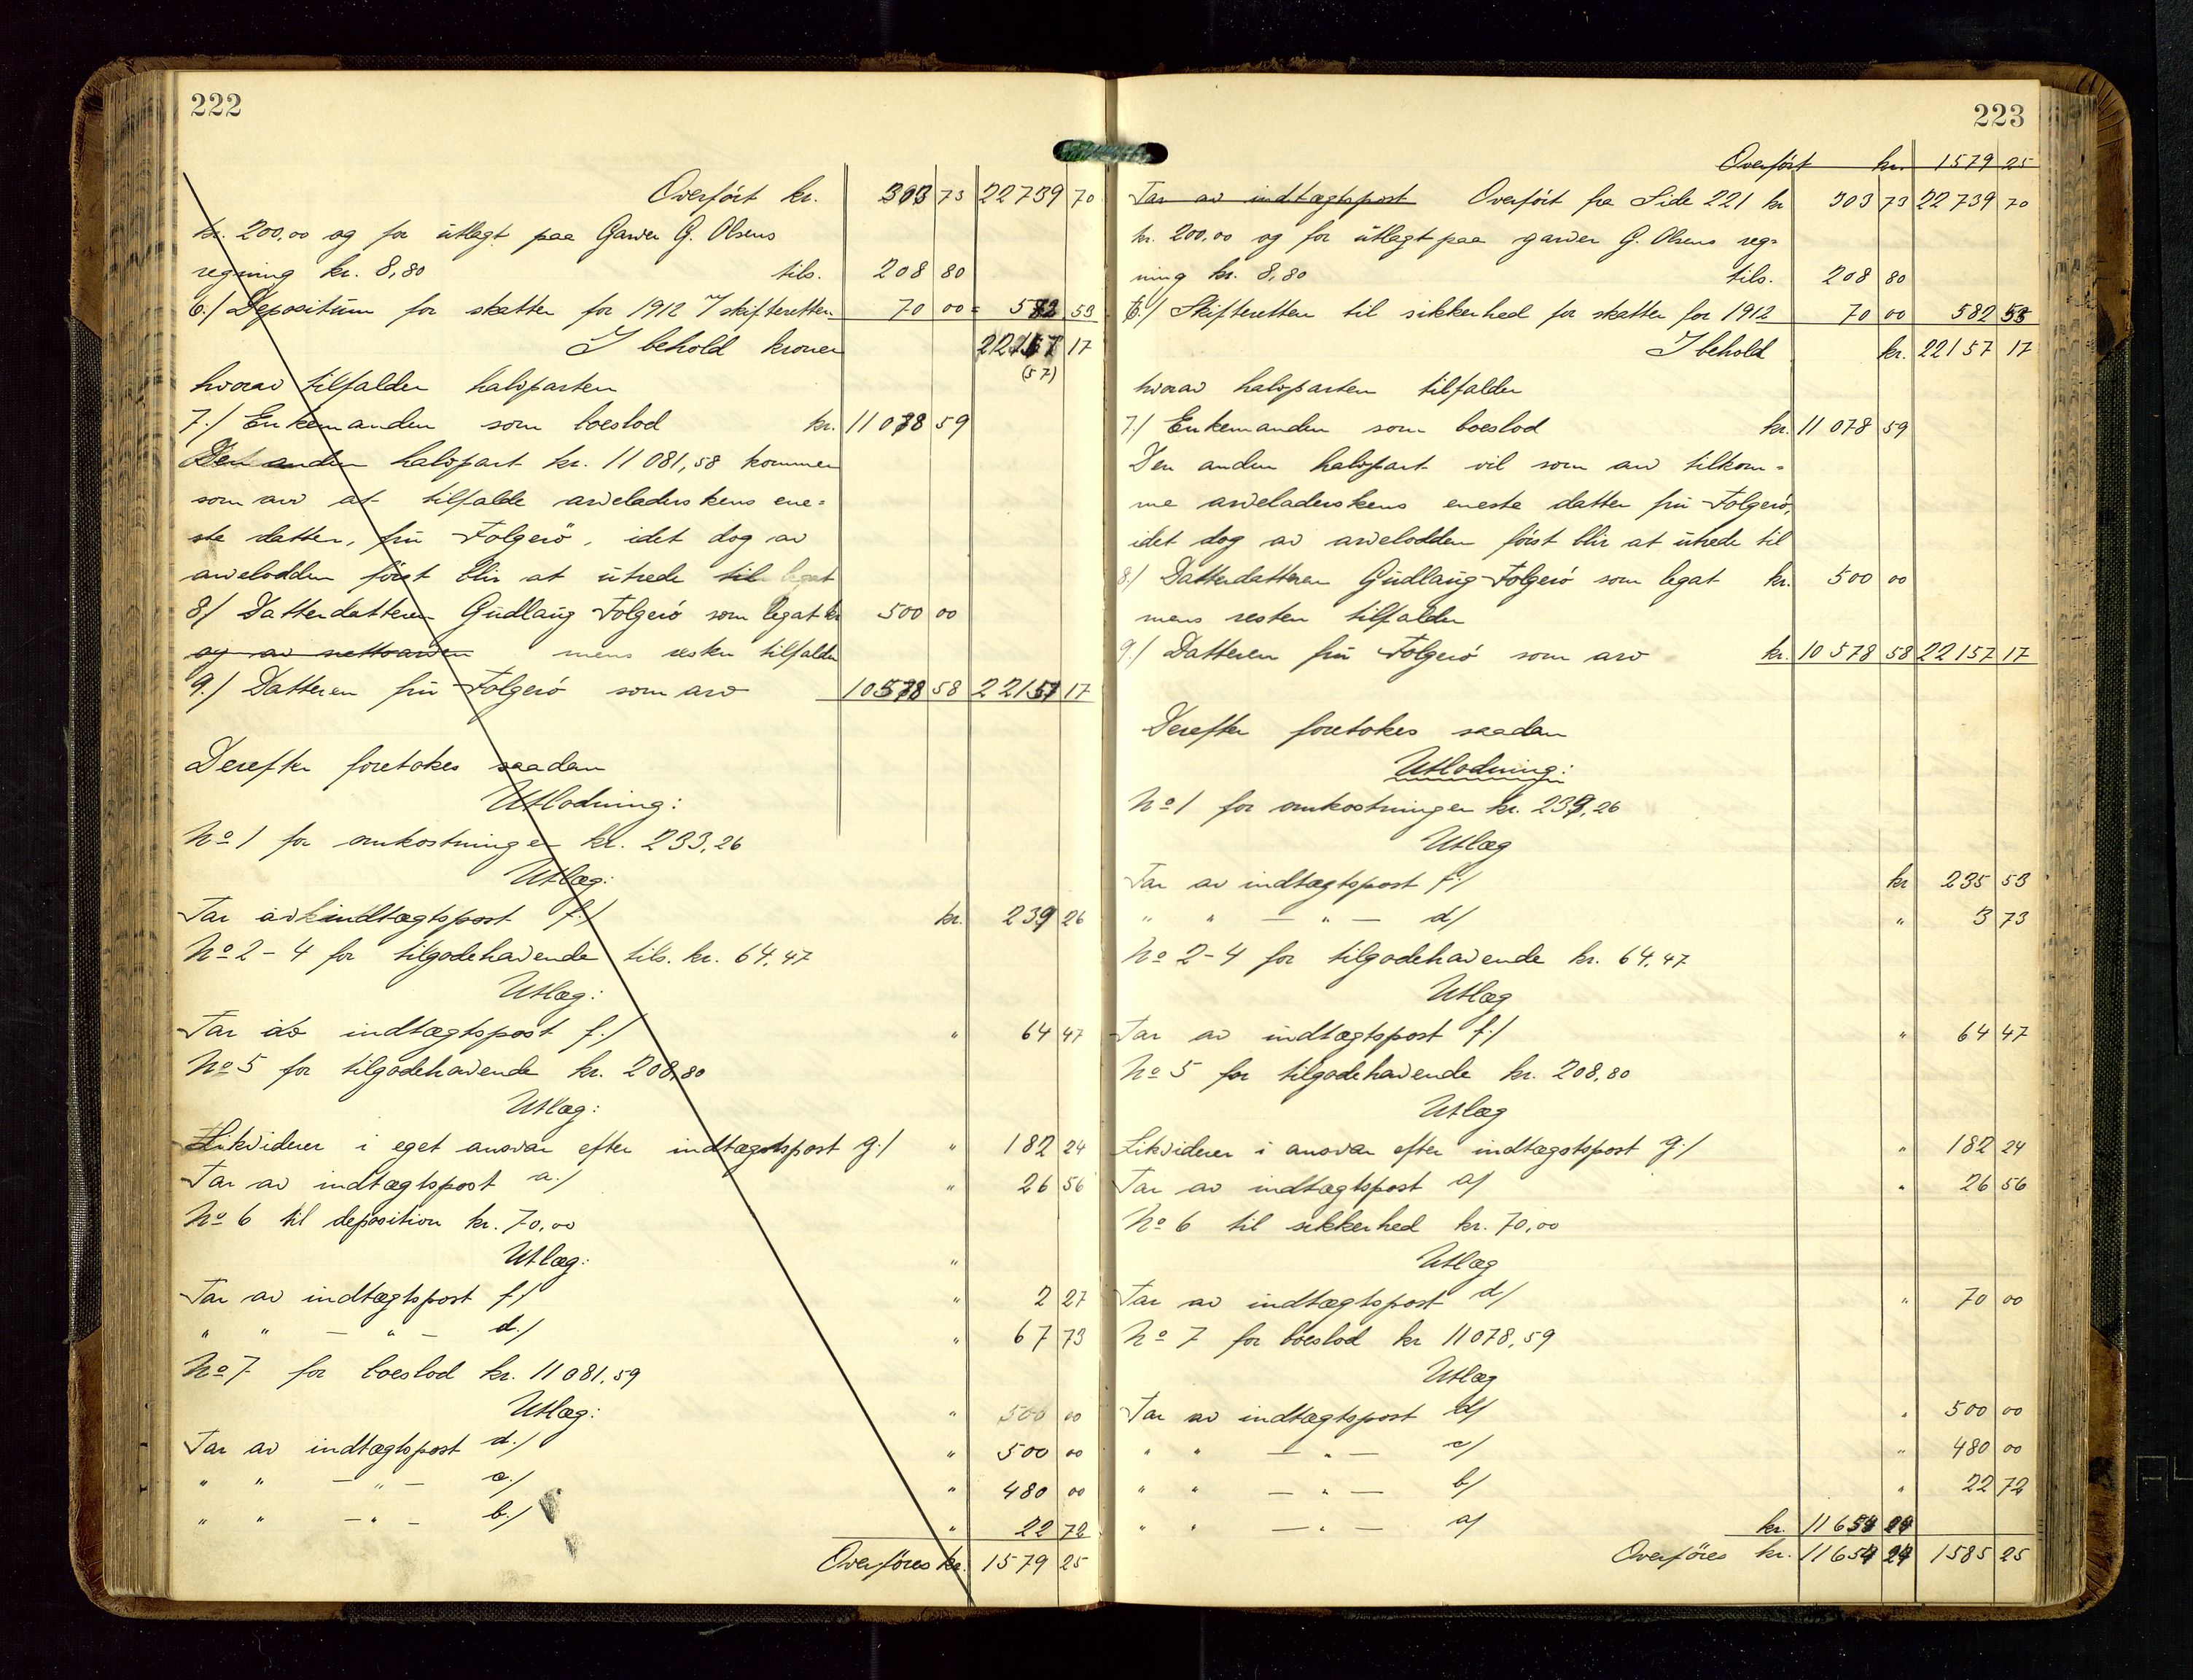 222
Overført kr. 303 73 22739 70
kr. 200,00 og for utlagt paa Garver G. Olsens
regning kr. 8,80 tils. 208 80
6./ Depositum for skatter for 1912 i skifteretten 70 00 = 582 53
I behold kroner 22157 17
(57)
hvorav tilfalder halvparten
7./ Enkemanden som boeslod kr. 11078 59
Den anden halvpart kr. 11081,58 kommer
som arv at tilfalde arveladerskens ene=
ste datter, fru Folgerö, idet dog av
arvelodden først blir at utrede til legat
8/ Datterdatteren Gudlaug Folgerö som legat kr 500 00
og av nettoarven mens resten tilfalder
9./ Datteren fru Folgerö som arv 10578 58 22157 17
Derefter foretokes saadan
Utlodning:
No 1 for omkostninger kr. 233,26
Utlæg:
Tar av indtægtspost f./ kr. 239 26
No 2-4 for tilgodehavende tils. kr. 64,47
Utlæg:
Tar av indtægtspost f./ " 64 47
No 5 for tilgodehavende kr. 208,80
Utlæg:
Likviderer i eget ansvar efter indtægtspost g./ " 182 24
Tar av indtægtspost a./ " 26 56
No 6 til deposition kr. 70,00
Utlæg: "
Tar av indtægtspost f/ " 2 27
" " — " — d./ " 67 73
No 7 for boeslod kr. 11081,59
Utlæg: " 500 00
Tar av indtægtspost d./ " 500 00
" " — " — c./ " 480 00
" " — " — b./ " 22 72
Overføres kr. 1579 25
223
Overført kr. 1579 25
Tar av indtægtspost Overført fra Side 221 kr 303 73 22739 70
kr. 200,00 og for utlagt paa garver G. Olsens reg=
ning kr. 8,80 tils. 208 80
6./ Skifteretten til sikkerhed for skatter for 1912 70 00 582 53
I behold kr. 22157 17
hvorav halvparten tilfalder
7./ Enkemanden som boeslod kr. 11078 59
Den anden halvpart vil som arv tilkom=
me arveladerskens eneste datter fru Folgerö,
idet dog av arvelodden først blir at utrede til
8/ Datterdatteren Gudlaug Folgerö som legat kr. 500 00
mens resten tilfalder
9./ Datteren fru Folgerö som arv kr. 10578 58 22157 17
Derefter foretokes saadan
Utlodning:
No 1 for omkostninger kr. 239,26
Utlæg
Tar av indtægtspost f./ kr 235 53
" " — " — d/ " 3 73
No 2-4 for tilgodehavende kr. 64,47
Utlæg
Tar av indtægtspost f./ " 64 47
No 5 for tilgodehavende kr. 208,80
Utlæg
Likviderer i ansvar efter indtægtspost g./ " 182 24
Tar av indtægtspost a/ " 26 56
No 6 til sikkerhed kr. 70,00
Utlæg
Tar av indtægtspost d/ " 70 00
No 7 for boeslod kr 11078,59
Utlæg
Tar av indtægtspost d/ " 500 00
" " — " — c/ " 480 00
" " — " — b/ " 22 72
" " — " — a/ kr. 11654 24
Overføres kr. 11654 24 1585 25